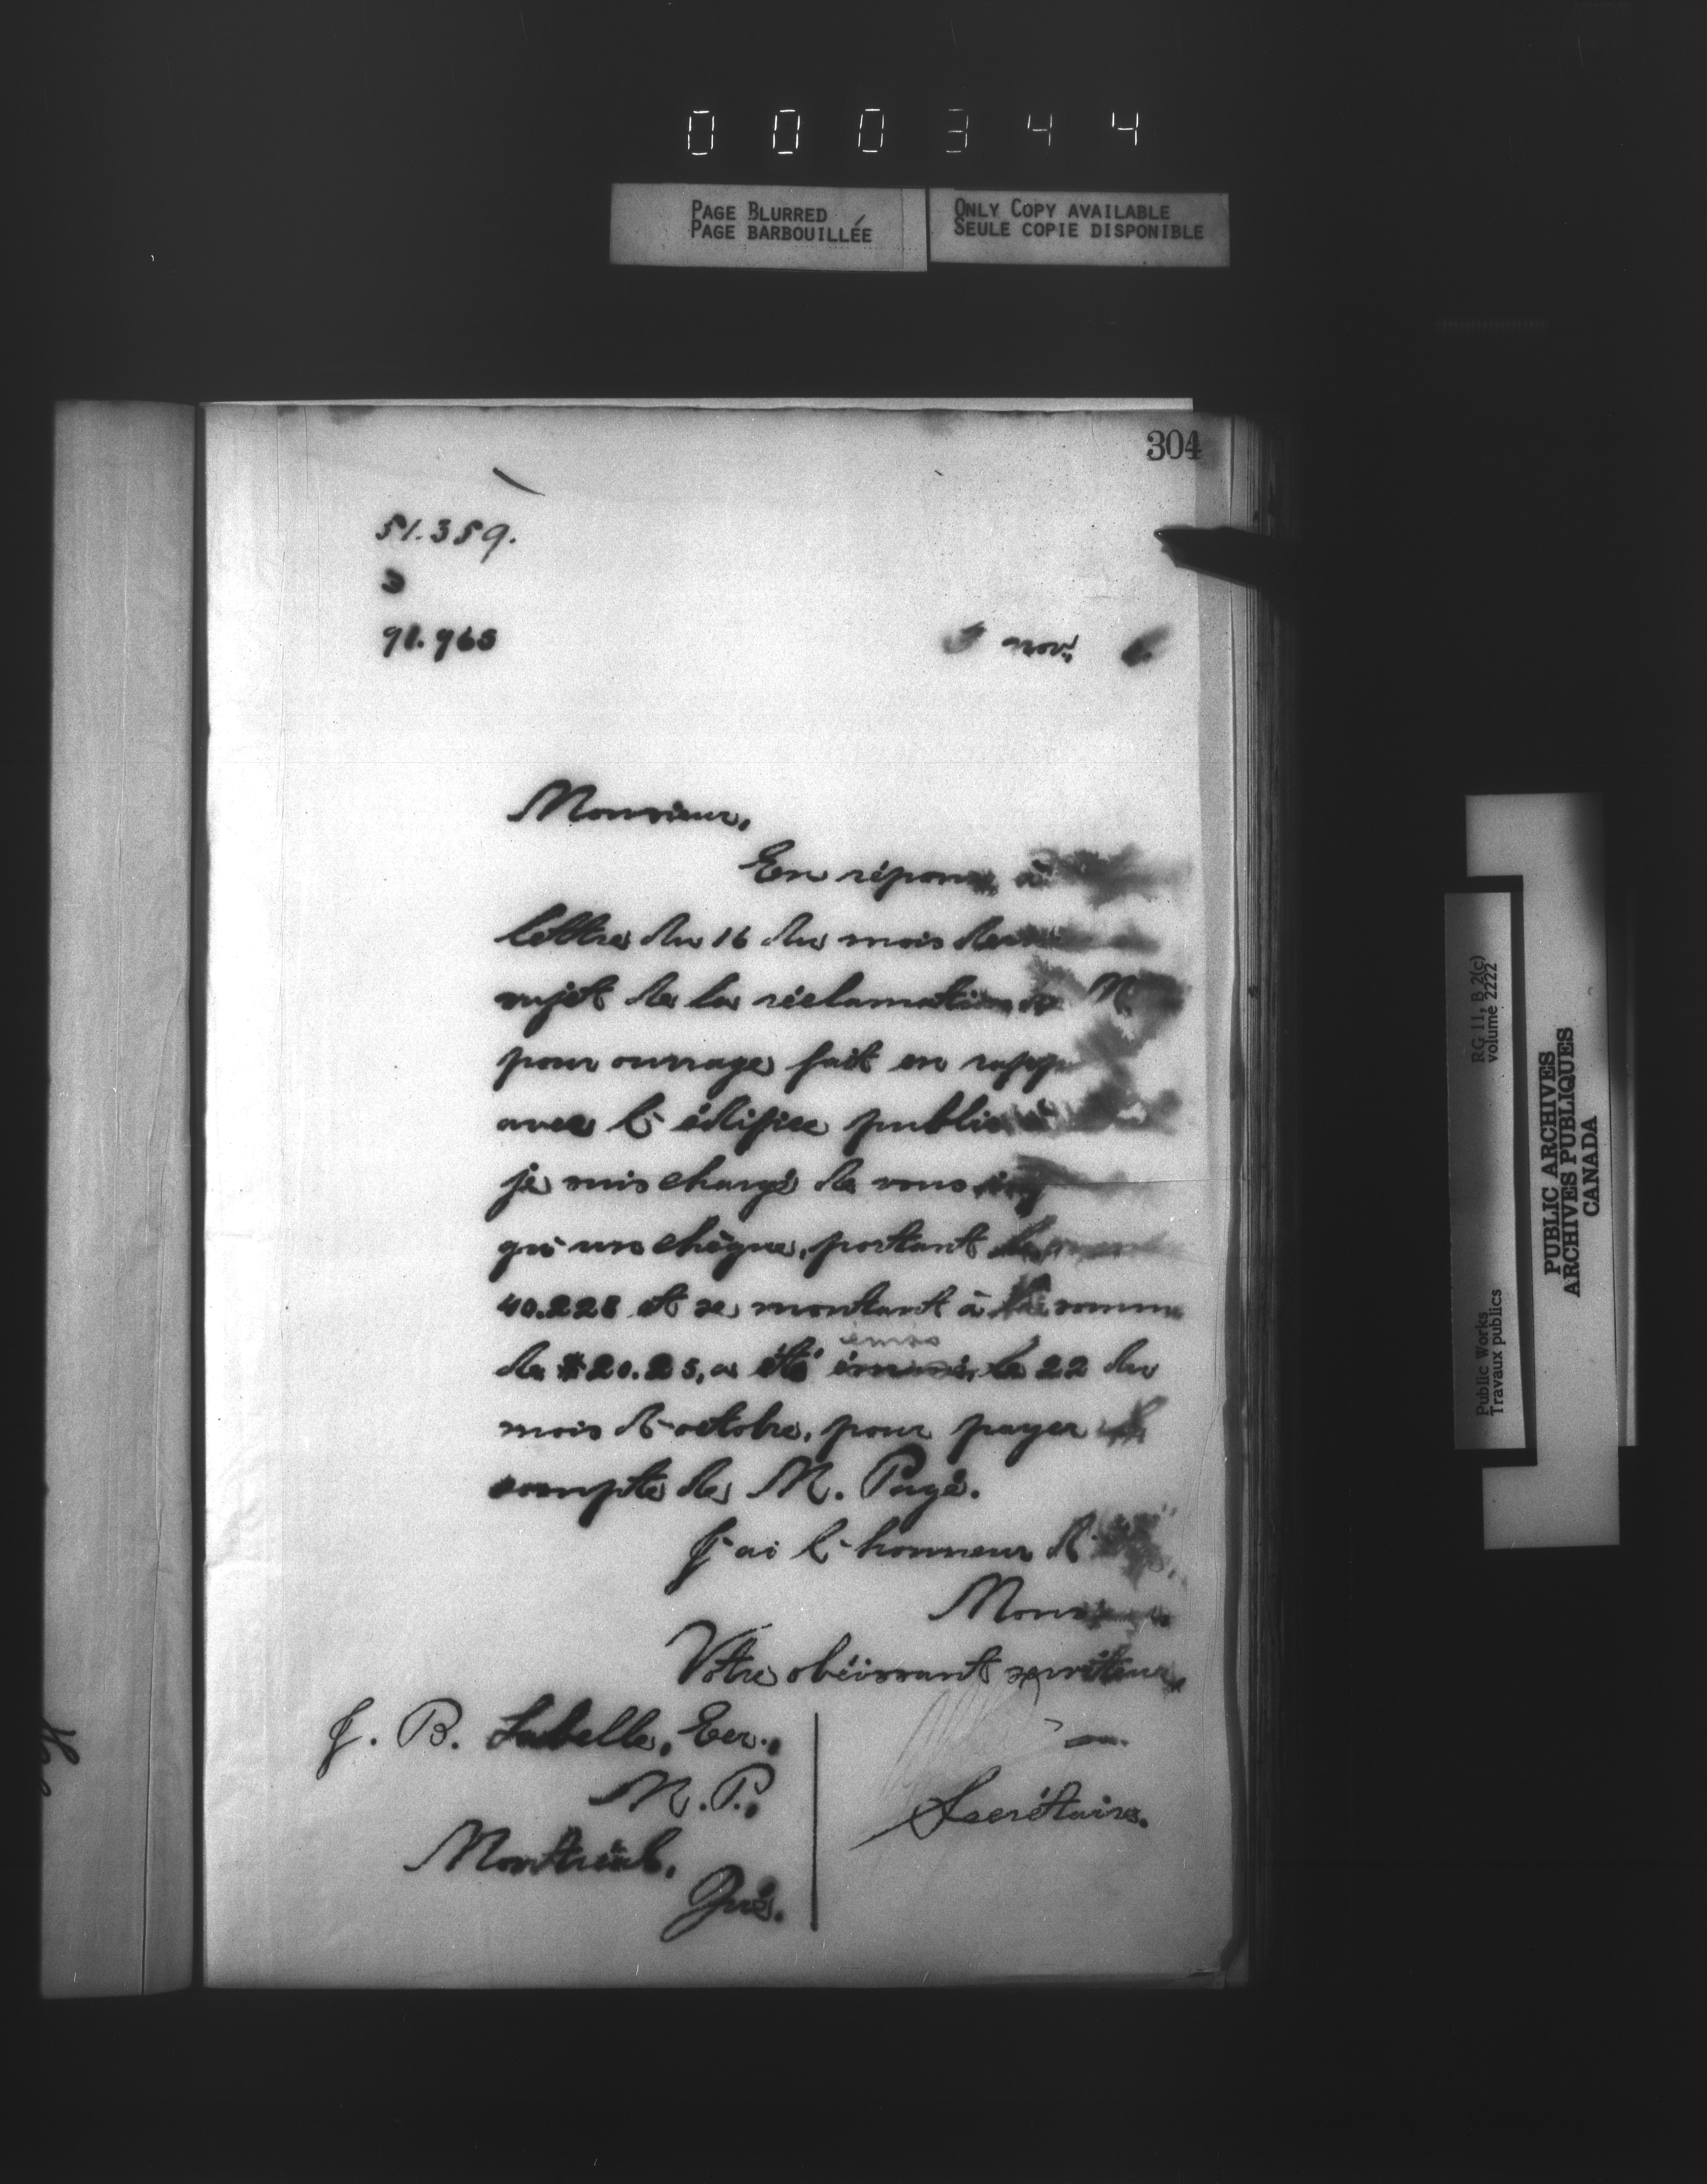 000344
PAGE BLURRED
PAGE BARBOUILLÉE
ONLY COPY AVAILABLE
SEULE COPIE DISPONIBLE
304
51.359.
3
91.965
nov.
Monsieur,
En réponse à
lettre du 16 du mois
sujet de la réclamation de M.
pour ouvrage fait en
avec l'édifice public
je suis chargé de vous
qu'un chèque, portant le
40.228 et se montant à la somme
de $20.25, a été émis le 22 du
mois d'octobre, pour payer le
compte de M. Pagé.
J'ai l'honneur d'
Monsieur
Votre obéissant serviteur,
J. B. Labelle, Ecr.,
N.P.,
Montréal,
Qué.
Secrétaire.
RG 11, B 2(c)
volume 2222
Public Works
Travaux publics
PUBLIC ARCHIVES
ARCHIVES PUBLIQUES
CANADA